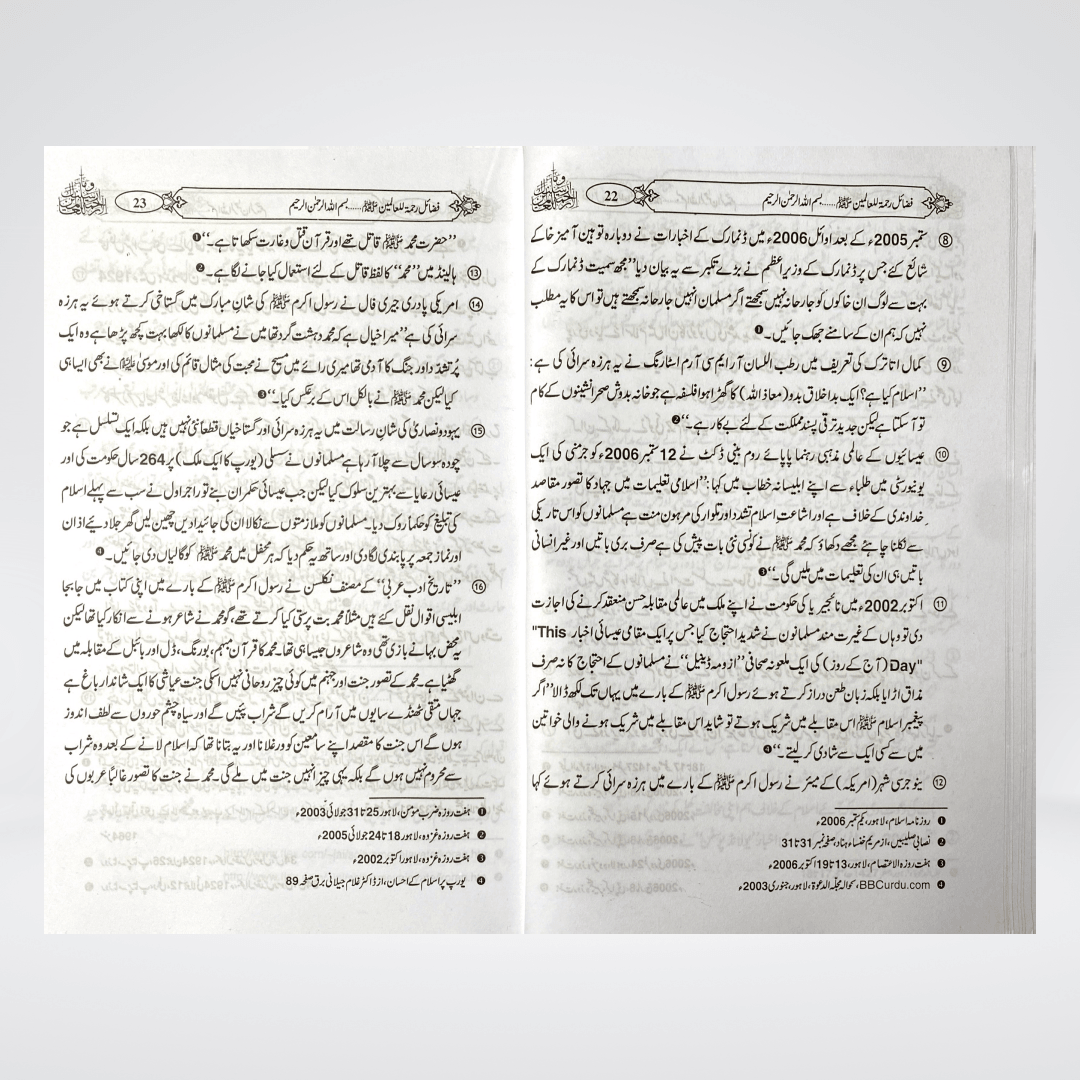 فضائل رحمة للعالمین ﷺ......بسم اللہ الرحمٰن الرحیم
22
⑧ ستمبر 2005ء کے بعد اوائل 2006ء میں ڈنمارک کے اخبارات نے دوبارہ توہین آمیز خاکے
شائع کئے جس پر ڈنمارک کے وزیر اعظم نے بڑے تکبر سے یہ بیان دیا ”مجھ سمیت ڈنمارک کے
بہت سے لوگ ان خاکوں کو جارحانہ نہیں سمجھتے اگر مسلمان انہیں جارحانہ سمجھتے ہیں تو اس کا یہ مطلب
نہیں کہ ہم ان کے سامنے جھک جائیں۔❶
⑨ کمال اتاترک کی تعریف میں رطب اللسان آر ایم سی آرم اسٹارنگ نے یہ ہرزہ سرائی کی ہے:
”اسلام کیا ہے؟ ایک بد اخلاق بدو (معاذ اللہ) کا گھڑا ہوا فلسفہ ہے جو خانہ بدوش صحرا نشینوں کے کام
تو آسکتا ہے لیکن جدید ترقی پسند مملکت کے لئے بے کار ہے۔“❷
⑩ عیسائیوں کے عالمی مذہبی رہنما پاپائے روم بینی ڈکٹ نے 12 ستمبر 2006ء کو جرمنی کی ایک
یونیورسٹی میں طلباء سے اپنے ابلیسانہ خطاب میں کہا: ”اسلامی تعلیمات میں جہاد کا تصور مقاصد
خداوندی کے خلاف ہے اور اشاعت اسلام تشدد اور تلوار کی مرہون منت ہے مسلمانوں کو اس تاریکی
سے نکلنا چاہئے مجھے دکھاؤ کہ محمد ﷺ نے کونسی نئی بات پیش کی ہے صرف بری باتیں اور غیر انسانی
باتیں ہی ان کی تعلیمات میں ملیں گی۔“❸
⑪ اکتوبر 2002ء میں نائجیریا کی حکومت نے اپنے ملک میں عالمی مقابلہ حسن منعقد کرنے کی اجازت
دی تو وہاں کے غیرت مند مسلمانوں نے شدید احتجاج کیا جس پر ایک مقامی عیسائی اخبار "This
Day" (آج کے روز) کی ایک ملعونہ صحافی ”ازومہ ڈینیل“ نے مسلمانوں کے احتجاج کا نہ صرف
مذاق اڑایا بلکہ زبان طعن دراز کرتے ہوئے رسول اکرم ﷺ کے بارے میں یہاں تک لکھ ڈالا ”اگر
پیغمبر اسلام ﷺ اس مقابلے میں شریک ہوتے تو شاید اس مقابلے میں شریک ہونے والی خواتین
میں سے کسی ایک سے شادی کر لیتے۔“❹
⑫ نیو جرسی شہر (امریکہ) کے میئر نے رسول اکرم ﷺ کے بارے میں ہرزہ سرائی کرتے ہوئے کہا
❶ روزنامہ اسلام، لاہور، یکم ستمبر 2006ء
❷ نصابی صلیبیں، از مریم خنساء بناد، صفحہ نمبر 31 تا 31
❸ ہفت روزہ الاعتصام، لاہور، 13 تا 19 اکتوبر 2006ء
❹ BBCurdu.com، بحوالہ مجلّۃ الدعوۃ، لاہور، جنوری 2003ء
فضائل رحمة للعالمین ﷺ......بسم اللہ الرحمٰن الرحیم
23
”حضرت محمد ﷺ قاتل تھے اور قرآن قتل و غارت سکھاتا ہے۔“❶
⑬ ہالینڈ میں ”محمد“ کا لفظ قاتل کے لئے استعمال کیا جانے لگا ہے۔❷
⑭ امریکی پادری جیری فال نے رسول اکرم ﷺ کی شان مبارک میں گستاخی کرتے ہوئے یہ ہرزہ
سرائی کی ہے ”میرا خیال ہے کہ محمد دہشت گرد تھا میں نے مسلمانوں کا لکھا بہت کچھ پڑھا ہے وہ ایک
پُر تشدد اور جنگ کا آدمی تھا میری رائے میں مسیح نے محبت کی مثال قائم کی اور موسیٰ علیہ السلام نے بھی ایسا ہی
کیا لیکن محمد ﷺ نے بالکل اس کے برعکس کیا۔“❸
⑮ یہود و نصاریٰ کی شان رسالت میں یہ ہرزہ سرائی اور گستاخیاں قطعاً نئی نہیں ہیں بلکہ ایک تسلسل ہے جو
چودہ سو سال سے چلا آ رہا ہے مسلمانوں نے سسلی (یورپ کا ایک ملک) پر 264 سال حکومت کی اور
عیسائی رعایا سے بہترین سلوک کیا لیکن جب عیسائی حکمران بنے تو راجر اول نے سب سے پہلے اسلام
کی تبلیغ کو حکماً روک دیا۔ مسلمانوں کو ملازمتوں سے نکالا ان کی جائیدادیں چھین لیں گھر جلا دیئے اذان
اور نماز جمعہ پر پابندی لگا دی اور ساتھ یہ حکم دیا کہ ہر محفل میں محمد ﷺ کو گالیاں دی جائیں۔❹
⑯ ”تاریخ ادب عربی“ کے مصنف نکلسن نے رسول اکرم ﷺ کے بارے میں اپنی کتاب میں جابجا
ابلیسی اقوال نقل کئے ہیں مثلاً محمد بت پرستی کیا کرتے تھے، گو محمد نے شاعر ہونے سے انکار کیا تھا لیکن
یہ محض بہانے بازی تھی وہ شاعروں جیسا ہی تھا، محمد کا قرآن مبہم، بورنگ، ڈل اور بائبل کے مقابلہ میں
گھٹیا ہے۔ محمد کے تصور جنت اور جہنم میں کوئی چیز روحانی نہیں اسکی جنت عیاشی کا ایک شاندار باغ ہے
جہاں متقی ٹھنڈے سایوں میں آرام کریں گے شراب پئیں گے اور سیاہ چشم حوروں سے لطف اندوز
ہوں گے اس جنت کا مقصد اپنے سامعین کو ورغلانا اور یہ بتانا تھا کہ اسلام لانے کے بعد وہ شراب
سے محروم نہیں ہوں گے بلکہ یہی چیز انہیں جنت میں ملے گی۔ محمد نے جنت کا تصور غالباً عربوں کی
❶ ہفت روزہ ضرب مؤمن، لاہور 25 تا 31 جولائی 2003ء
❷ ہفت روزہ غزوہ، لاہور 18 تا 24 جولائی 2005ء
❸ ہفت روزہ غزوہ، لاہور اکتوبر 2002ء
❹ یورپ پر اسلام کے احسان، از ڈاکٹر غلام جیلانی برق صفحہ 89